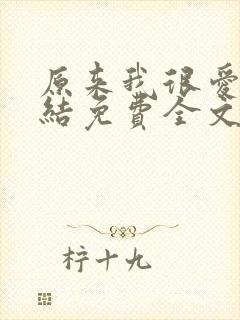 原来我很爱
結免費全文
柠十九